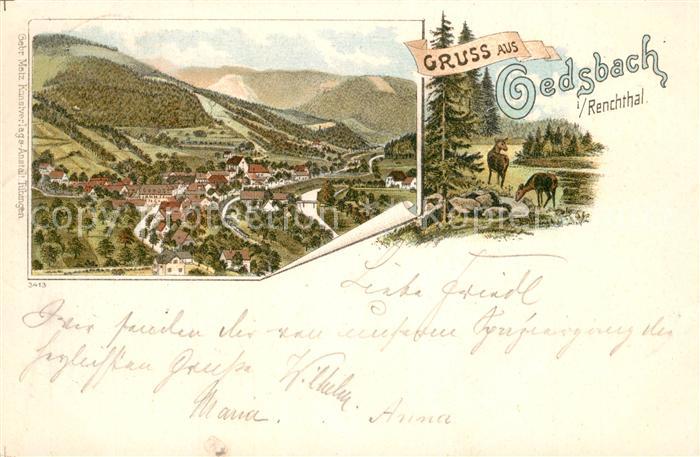 GRUSS AUS
Oedsbach
i/Renchthal.
Gebr. Metz, Kunstverlags-Anstalt, Tübingen
3413
Copyright Protection Copyright Protection
Liebe Friedl
Wir senden dir von unserem Spaziergang die
herzlichsten Grüße Wilhelm
Maria. Anna